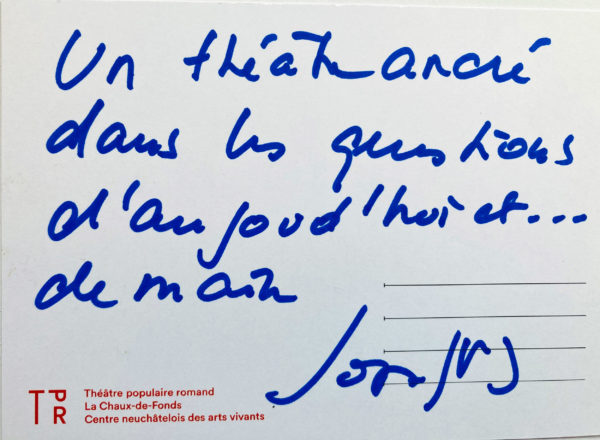 Un théâtre ancré
dans les questions
d'aujourd'hui et...
demain
TPR
Théâtre populaire romand
La Chaux-de-Fonds
Centre neuchâtelois des arts vivants